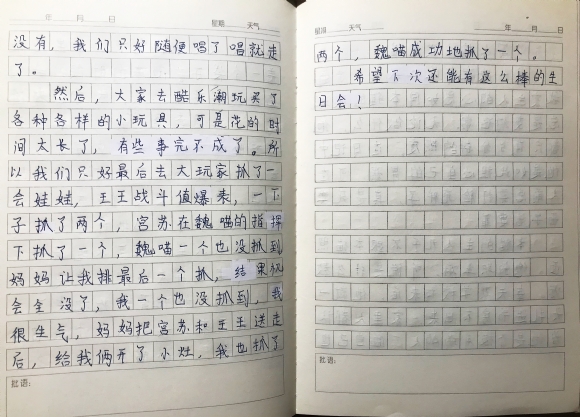 年 月 日 星期 天气
没有，我们只好随便唱了唱就走
了。
然后，大家去酷乐潮玩买了
各种各样的小玩具，可是花的时
间太长了，有些事完不成了。所
以我们只好最后去大玩家抓了一
会娃娃，王王战斗值爆表，一下
子抓了两个，宫苏在魏喵的指挥
下抓了一个，魏喵一个也没抓到
妈妈让我排最后一个抓，结果机
会全没了，我一个也没抓到，我
很生气，妈妈把宫苏和王王送走
后，给我俩开了小灶，我也抓了
批语：
星期 天气 年 月 日
两个，魏喵成功地抓了一个。
希望下次还能有这么棒的生
日会！
批语：